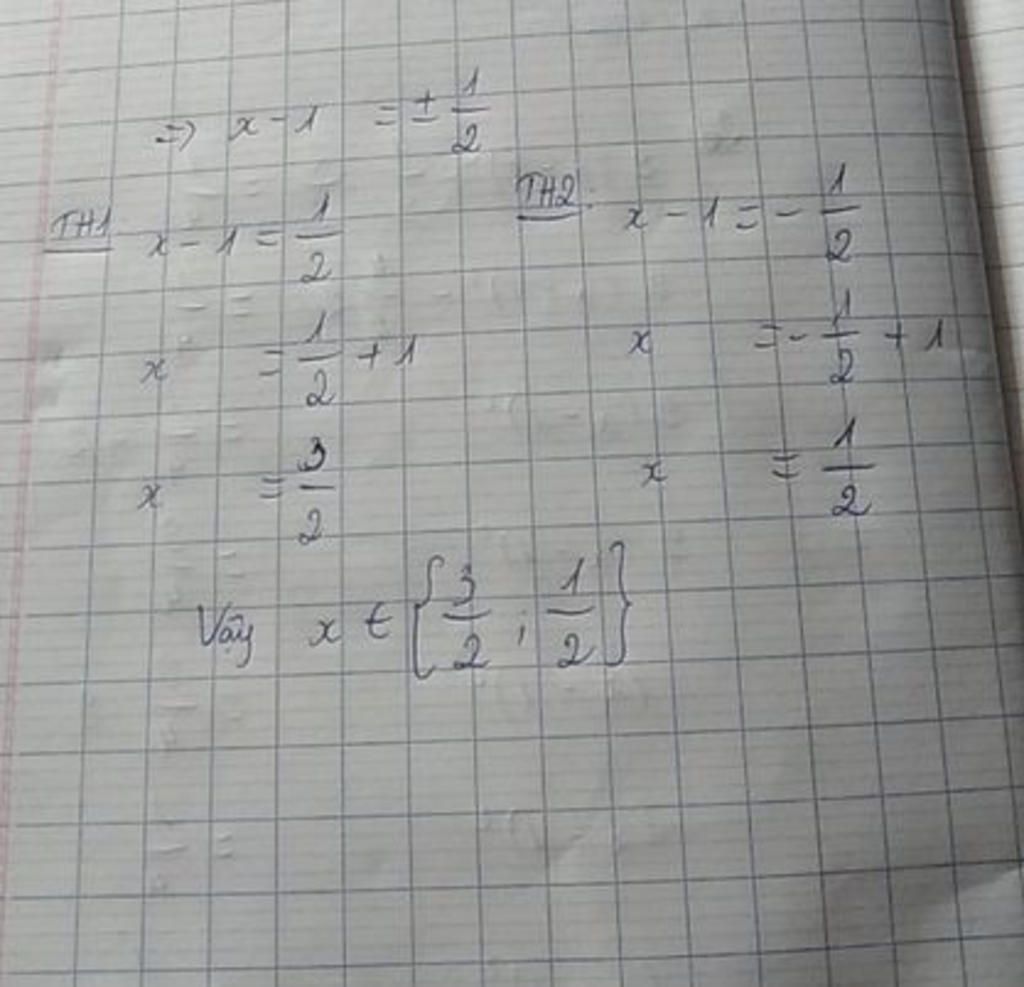 => x - 1 = ± 1/2
TH1 x - 1 = 1/2
x = 1/2 + 1
x = 3/2
TH2: x - 1 = - 1/2
x = - 1/2 + 1
x = 1/2
Vậy x ∈ {3/2 ; 1/2}